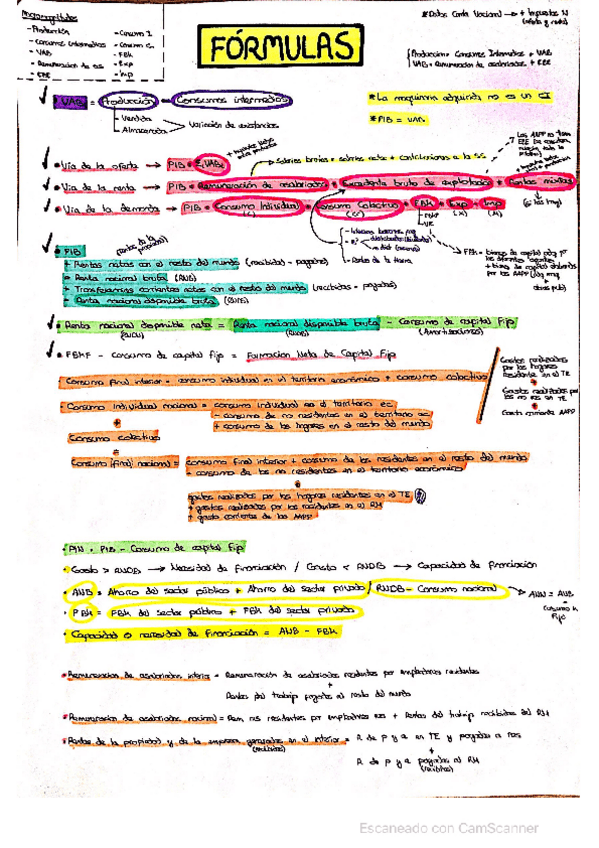 Macromagnitudes
- Producción - Consumo I
- Consumos intermedios - Consumo C.
- VAB - FBK
- Remuneración de as. - Exp
- EBE - Imp
FÓRMULAS
* Datos Conta Nacional → + Impuestos N
Producción = Consumos Intermedios + VAB
VAB = Remuneración de asalariados + EBE
VAB = Producción - Consumos intermedios
Vendida
Almacenada → Variación de existencias
* La maquinaria adquirida no es un CI
* PIB = VAB
Vía de la oferta → PIB = Σ VAB
Salarios brutos = salarios netos + contribuciones a la SS
Vía de la renta → PIB = Remuneración de asalariados + Excedente bruto de explotación + Rentas mixtas
Vía de la demanda → PIB = Consumo Individual + Consumo Colectivo + FBK + Exp - Imp
(X) (M)
- Renta de la tierra
PIB
+ Rentas netas con el resto del mundo (recibidas - pagadas)
= Renta nacional bruta (RNB)
+ Transferencias corrientes netas con el resto del mundo (recibidas - pagadas)
= Renta nacional disponible bruta (RNDB)
Renta nacional disponible neta = Renta nacional disponible bruta - Consumo de capital Fijo
(RNDB) (Amortizaciones)
FBKF - Consumo de capital fijo = Formación Neta de Capital Fijo
Consumo final interior = consumo individual en el territorio económico + consumo colectivo
Gastos realizados
por los hogares
residentes en el TE
+
Gastos realizados por
los no res en TE
+
Gasto corriente AAPP
Consumo Individual nacional = consumo individual en el territorio ec
- consumo de no residentes en el territorio ec
+ consumo de los hogares en el resto del mundo
+
Consumo colectivo
=
Consumo (final) nacional = consumo final interior + consumo de los residentes en el resto del mundo
- consumo de los no residentes en el territorio económico
=
gastos realizados por los hogares residentes en el TE
+ gastos realizados por los residentes en el RM
+ gasto corriente de las AAPP
PIN = PIB - Consumo de capital Fijo
Gasto > RNDB → Necesidad de Financiación / Gasto < RNDB → Capacidad de financiación
ANB = Ahorro del sector público + Ahorro del sector privado / RNDB - Consumo nacional → ANN = ANB
- Consumo K
Fijo
FBK = FBK del sector público + FBK del sector privado
Capacidad o necesidad de Financiación = ANB - FBK
Remuneración de asalariados interior = Remuneración de asalariados residentes por empleadores residentes
+
Rentas del trabajo pagadas al resto del mundo
Remuneración de asalariados nacional = Rem ras residentes por empleadores res + Rentas del trabajo recibidas del RM
Rentas de la propiedad y de la empresa generadas en el interior = R de P y e en TE y pagadas a res
(recibidas) +
R de P y e pagadas al RM
(recibidas)
Escaneado con CamScanner